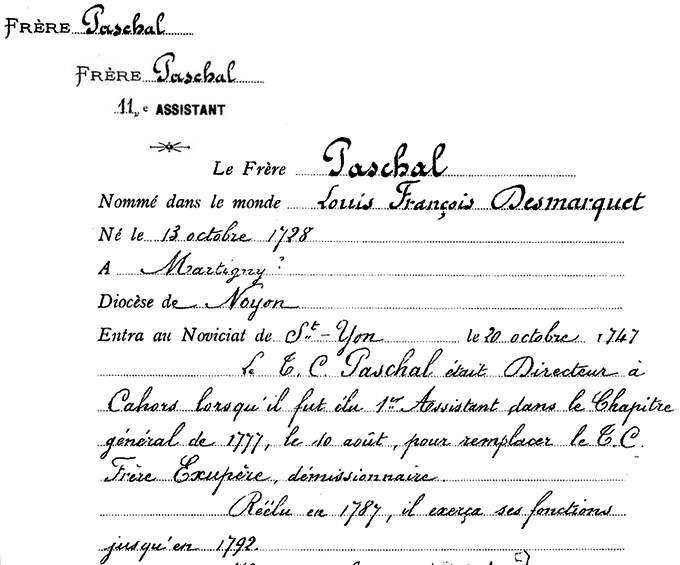 FRÈRE Paschal
FRÈRE Paschal
11e ASSISTANT
Le Frère Paschal
Nommé dans le monde Louis François Desmarquet
Né le 13 octobre 1728
A Martigny?
Diocèse de Noyon
Entra au Noviciat de St-Yon le 20 octobre 1747
Le T. C. Paschal était Directeur à
Cahors lorsqu'il fut élu 1er Assistant dans le Chapitre
général de 1777, le 10 août, pour remplacer le T. C.
Frère Exupère, démissionnaire.
Réélu en 1787, il exerça ses fonctions
jusqu'en 1792.